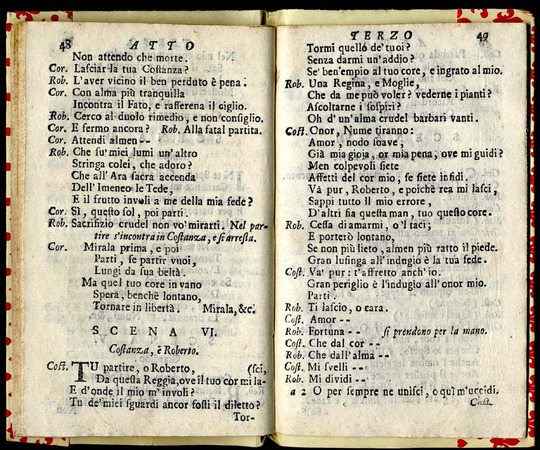 48 ATTO
Non attendo che morte.
Cor. Lasciar la tua Costanza?
Rob. L'aver vicino il ben perduto è pena.
Cor. Con alma più tranquilla
Incontra il Fato, e rasserena il ciglio.
Rob. Cerco al duolo rimedio, e non consiglio.
Cor. E fermo ancora? Rob. Alla fatal partita.
Cor. Attendi almen--
Rob. Che su' miei lumi un'altro
Stringa colei, che adoro?
Che all'Ara sacra accenda
Dell'Imeneo le Tede,
E il frutto involi a me della mia fede?
Cor. Sì, questo sol, poi parti.
Rob. Sacrifizio crudel non vo' mirarti. Nel par-
tire s'incontra in Costanza, e si arresta.
Cor. Mirala prima, e poi
Parti, se partir vuoi,
Lungi da sua beltà.
Ma quel tuo core in vano
Spera, benchè lontano,
Tornare in libertà. Mirala, &c.
SCENA VI.
Costanza, è Roberto.
Cost. TU partire, o Roberto, (sci,
Da questa Reggia, ove il tuo cor mi la-
E d'onde il mio m'involi?
Tu de' miei sguardi ancor fosti il diletto?
Tor-
TERZO 49
Tormi quello de' tuoi?
Senza darmi un'addio?
Se' ben'empio al tuo core, e ingrato al mio.
Rob. Una Regina, e Moglie,
Che da me può voler? vederne i pianti?
Ascoltarne i sospiri?
Oh d'un'alma crudel barbari vanti.
Cost. Onor, Nume tiranno:
Amor, nodo soave,
Già mia gioja, or mia pena, ove mi guidi?
Men colpevoli siete
Affetti del cor mio, se siete infidi.
Và pur, Roberto, e poichè rea mi lasci,
Sappi tutto il mio errore,
D'altri sia questa man, tuo questo core.
Rob. Cessa di amarmi, o'l taci;
E porterò lontano,
Se non più lieto, almen più ratto il piede.
Gran lusinga all'indugio è la tua fede.
Cost. Va' pur: t'affretto anch'io.
Gran periglio è l'indugio all'onor mio.
Parti.
Rob. Ti lascio, o cara.
Cost. Amor--
Rob. Fortuna-- si prendono per la mano.
Cost. Che dal cor--
Rob. Che dall'alma--
Cost. Mi svelli--
Rob. Mi dividi--
a 2 O per sempre ne unisci, o quì m'uccidi.
Cost.